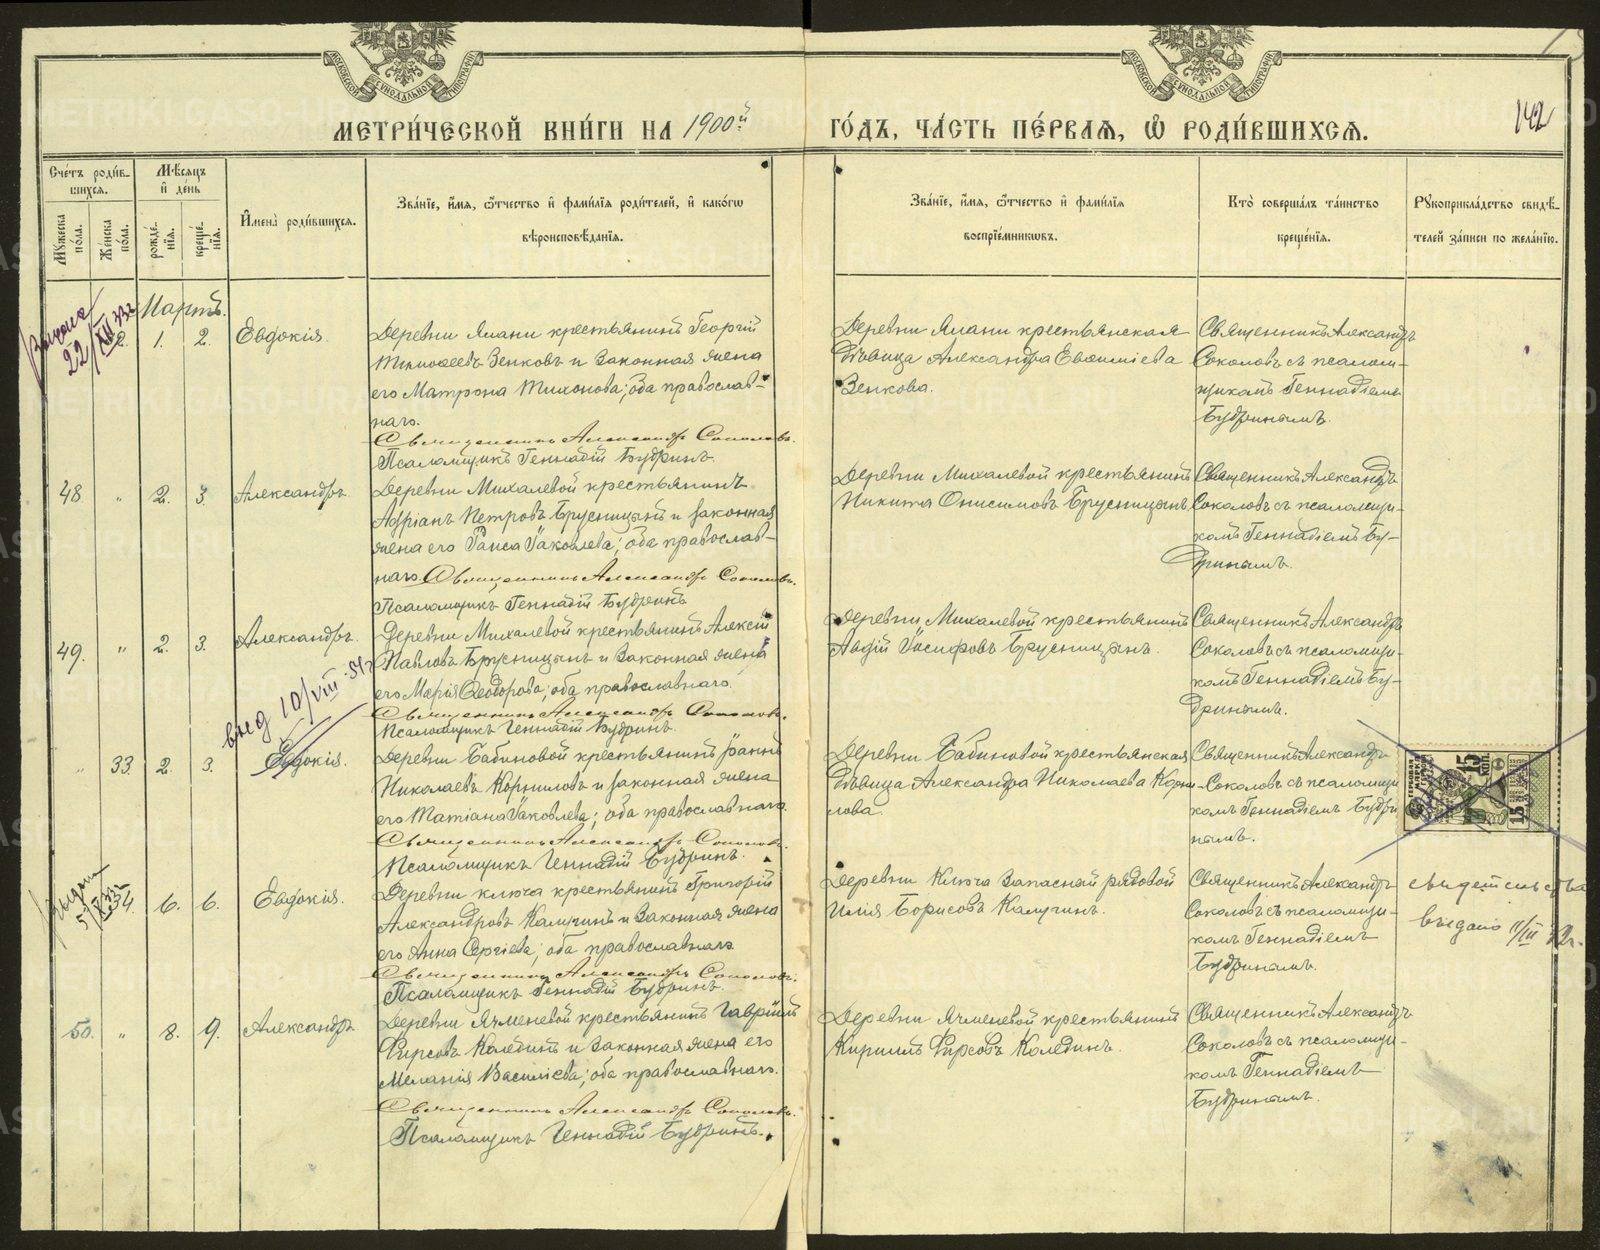 МОСКОВСКОЙ СѴНОДАЛЬНОЙ ТИПОГРАФІИ
МОСКОВСКОЙ СѴНОДАЛЬНОЙ ТИПОГРАФІИ
МЕТРИ́ЧЕСКОЙ КНИ́ГИ НА 1900й
ГО́ДЪ, ЧА́СТЬ ПЕ́РВАЯ, Ѽ РОДИ́ВШИХСЯ.
142
Сче́тъ роди́в-
шихся.
Мѣ́сяцъ
и҆ де́нь
Мꙋ́жеска по́ла.
Же́нска по́ла.
рожде́-
нїѧ.
креще́-
нїѧ.
И҆мена̀ роди́вшихся.
Зва́нїе, и҆́мя, ѻ҆́тчество и҆ фами́лїѧ роди́телей, и҆ како́гѡ
вѣроисповѣ́данїѧ.
Зва́нїе, и҆́мя, ѻ҆́тчество и҆ фами́лїѧ
воспрїе́мникѡвъ.
Кто̀ соверша́лъ та́инство
креще́нїѧ.
Рꙋкоприкла́дство свидѣ́-
телей за́писи по жела́нїю.
Мартъ.
1. 2. Евдокія.
Деревни Ялани крестьянинъ Георгій
Тимоѳеевъ Зенковъ и законная жена
его Матрона Тихонова; оба православ-
наго.
Священникъ Александръ Соколовъ.
Псаломщикъ Геннадій Будринъ.
Деревни Ялани крестьянская
дѣвица Александра Евѳиміева
Зенкова.
Священникъ Александръ
Соколовъ съ псалом-
щикомъ Геннадіемъ
Будринымъ.
48 " 2. 3. Александръ.
Деревни Михалевой крестьянинъ
Адріанъ Петровъ Брусницынъ и законная
жена его Раиса Яковлева; оба православ-
наго. Священникъ Александръ Соколовъ.
Псаломщикъ Геннадій Будринъ
Деревни Михалевой крестьянинъ
Никита Онисимовъ Брусницынъ.
Священникъ Александръ
Соколовъ съ псаломщи-
комъ Геннадіемъ Бу-
дринымъ.
49. " 2. 3. Александръ.
Деревни Михалевой крестьянинъ Алексій
Павловъ Брусницынъ и законная жена
его Марія Ѳеодорова; оба православнаго.
Священникъ Александръ Соколовъ.
Псаломщикъ Геннадій Будринъ.
Деревни Михалевой крестьянинъ
Авдій Іосифовъ Брусницынъ.
Священникъ Александръ
Соколовъ съ псаломщи-
комъ Геннадіемъ Бу-
дринымъ.
выд 10/VIII
" 33. 2. 3. Евдокія.
Деревни Бабиновой крестьянинъ Іоаннъ
Николаевъ Корниловъ и законная жена
его Татіана Яковлева; оба православнаго.
Священникъ Александръ Соколовъ.
Псаломщикъ Геннадій Будринъ.
Деревни Бабиновой крестьянская
дѣвица Александра Николаева Корни-
лова.
Священникъ Александръ
Соколовъ съ псаломщи
комъ Геннадіемъ Будри
нымъ.
ГЕРБОВАЯ МАРКА
15 КОП.
15
34. 6. 6. Евдокія.
Деревни Ключа крестьянинъ Григорій
Александровъ Калугинъ и законная жена
его Анна Сергіева; оба православнаго
Священникъ Александръ Соколовъ.
Псаломщикъ Геннадій Будринъ.
Деревни Ключа запасной рядовой
Илія Борисовъ Калугинъ.
Священникъ Александръ
Соколовъ съ псаломщи-
комъ Геннадіемъ
Будринымъ.
свидетельство
выдано
50. " 8. 9. Александръ
Деревни Ячменевой крестьянинъ Гавріилъ
Фирсовъ Колединъ и законная жена его
Меланія Василіева; оба православнаго.
Священникъ Александръ Соколовъ.
Псаломщикъ Геннадій Будринъ.
Деревни Ячменевой крестьянинъ
Кириллъ Фирсовъ Колединъ.
Священникъ Александръ
Соколовъ съ псаломщи-
комъ Геннадіемъ
Будринымъ.